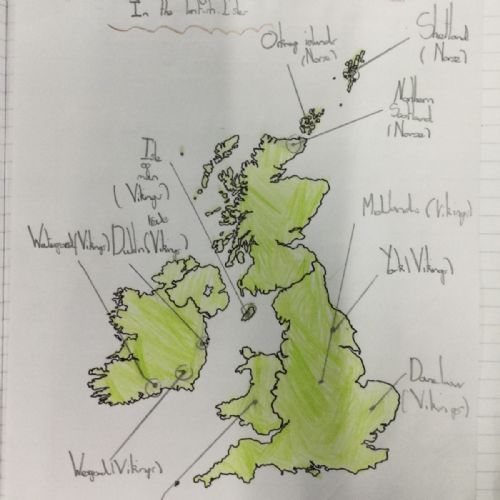 In the British Isles
Orkney islands
(Norse)
Shetland
(Norse)
Northern
Scotland
(Norse)
Isle
of
man
(Vikings)
Midlands (Vikings)
Waterford (Vikings)
Dublin (Vikings)
York (Vikings)
Danelaw
(Vikings)
Wexford (Vikings)